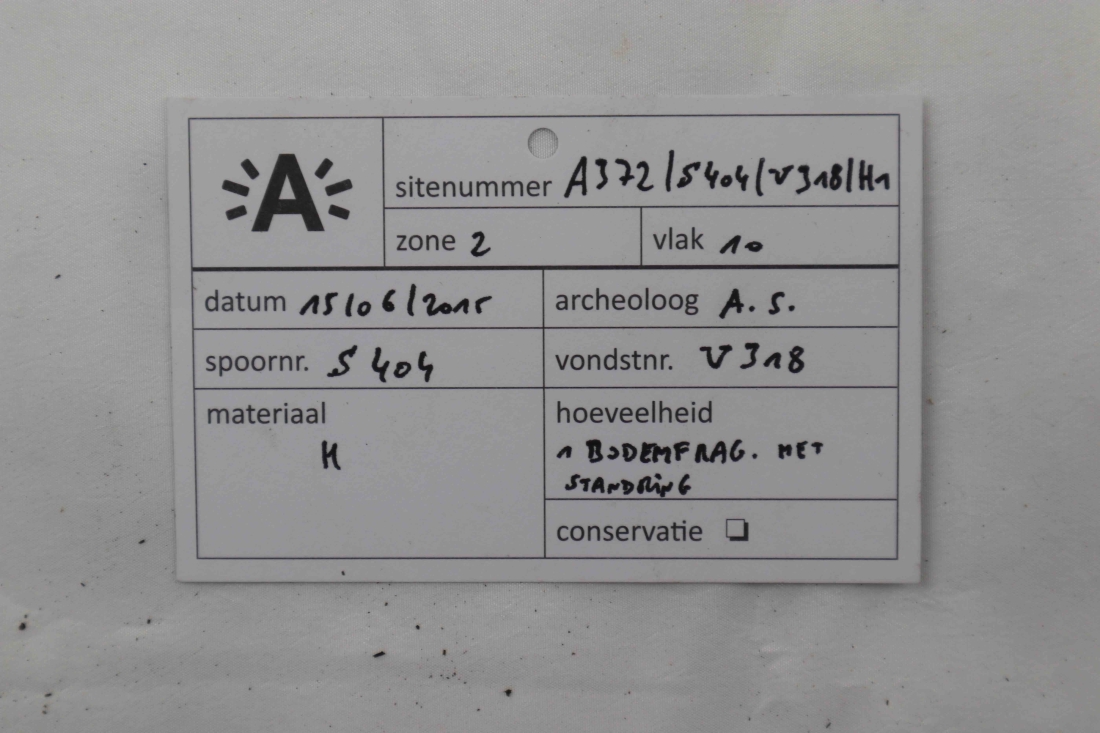 A
sitenummer A372/S404/V318/H1
zone 2 vlak 10
datum 15/06/2015 archeoloog A.S.
spoornr. S 404 vondstnr. V318
materiaal hoeveelheid
H 1 BODEMFRAG. MET
STANDRING
conservatie